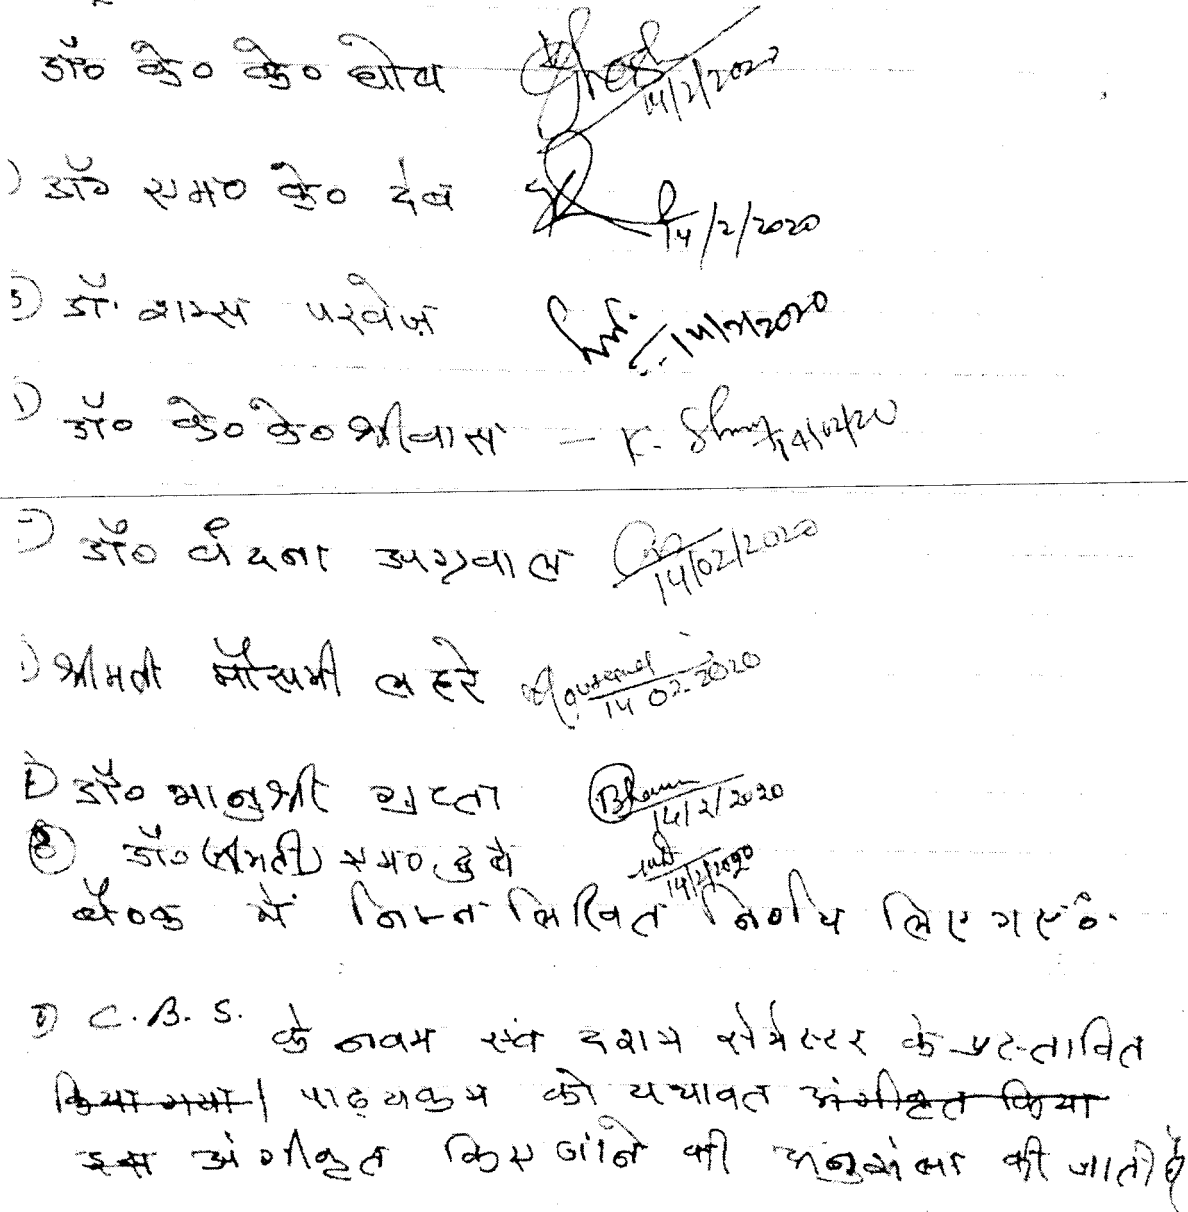 डॉ० के० के० घोष Ghosh 14/2/2020
) डॉ० एम० के० देब 14/2/2020
5) डॉ. शम्स परवेज़ 14/2/2020
) डॉ० के० के० श्रीवास - K. 14/02/20
) डॉ० वंदना अग्रवाल 14/02/2020
) श्रीमती मौसमी लहरे 14 02 2020
) डॉ० भानुश्री गुप्ता 14/2/2020
8) डॉ० (श्रीमती) एम०. दुबे 14/2/2020
बैठक में निम्न लिखित निर्णय लिए गए ०.
1) C.B.S. के नवम एवं दशम सेमेस्टर के प्रस्तावित
किया गया। पाठ्यक्रम को यथावत अंगीकृत किया
इस अंगीकृत किए जाने की अनुशंसा की जाती है